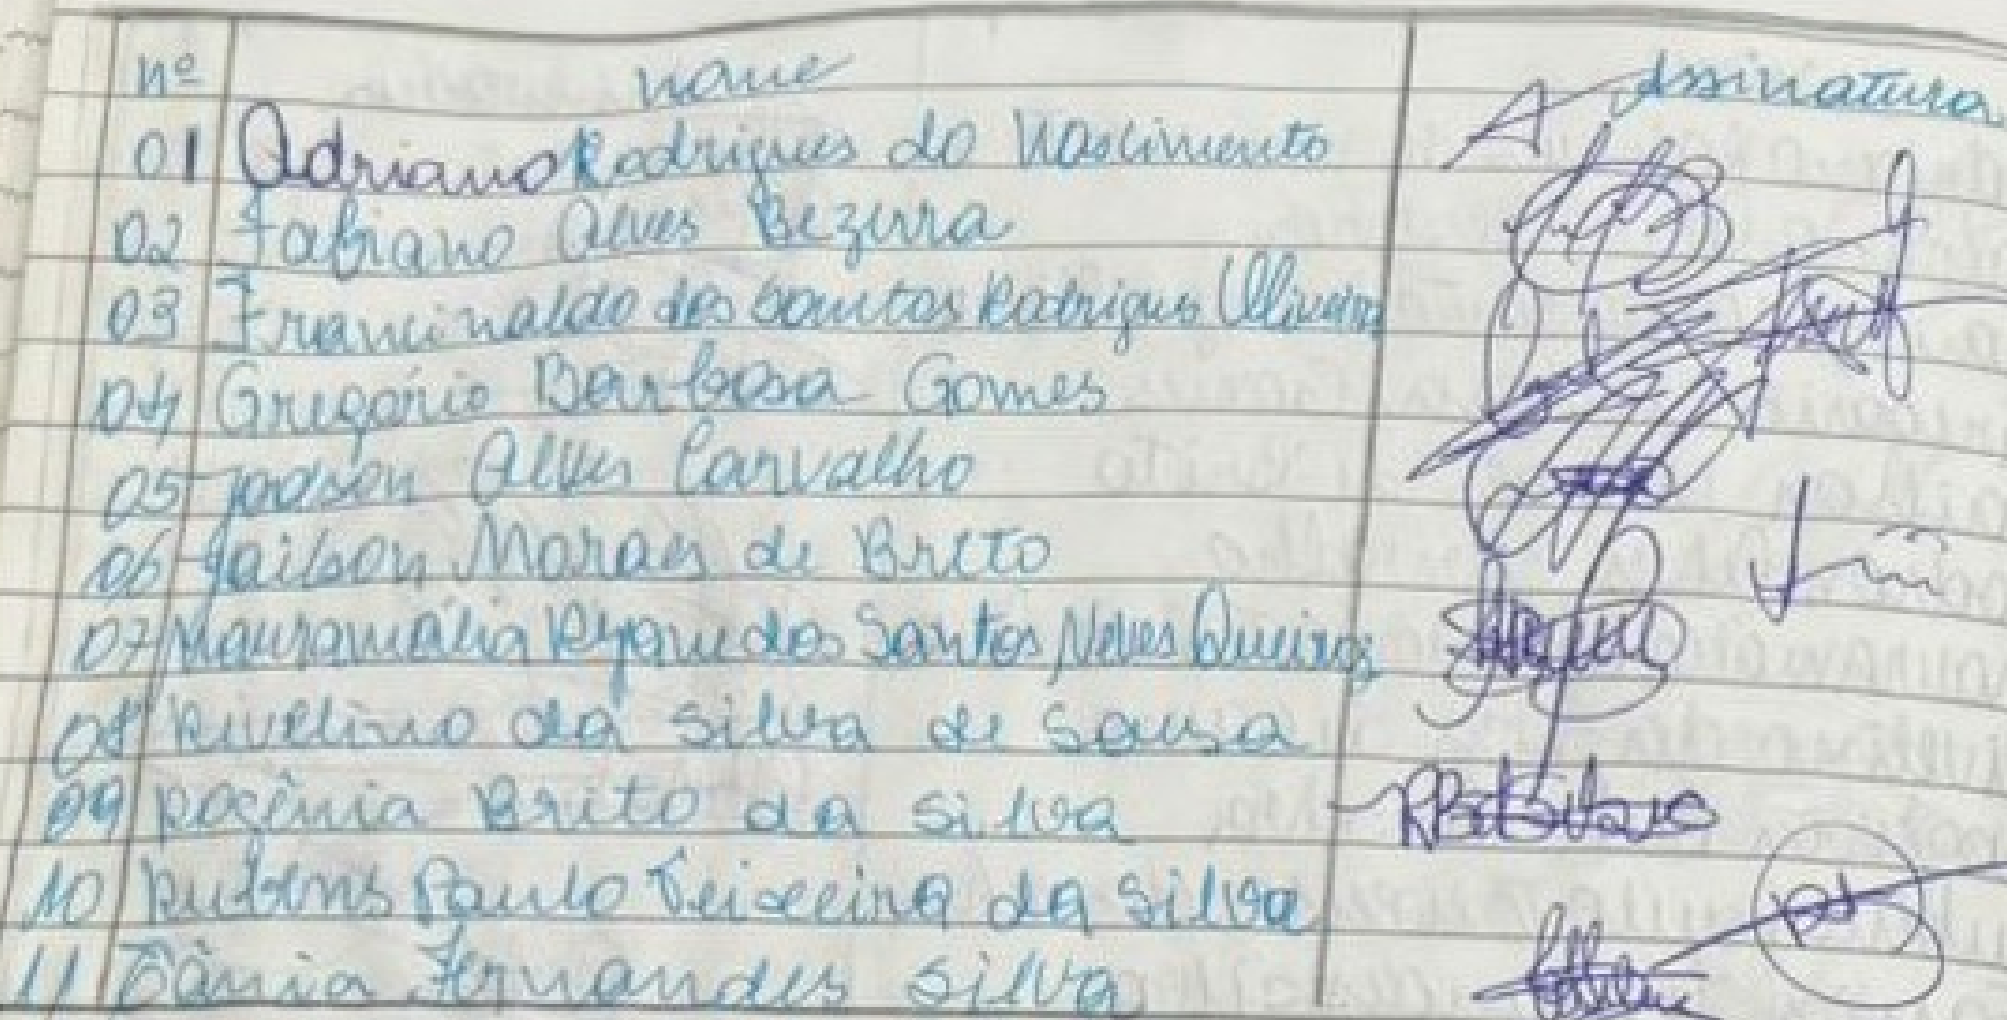 nº nome Assinatura
01 Adriano Rodrigues do Nascimento
02 Fabiano Alves Bezerra
03 Francinaldo dos Santos Rodrigues Oliveira
04 Gregório Barbosa Gomes
05 Jadson Alves Carvalho
06 Jailson Moraes de Brito
07 Mauramália Ryane dos Santos Neves Queiroz
08 Rivelino da Silva de Sousa
09 Rogênia Brito da Silva
10 Rubens Paulo Teixeira da Silva
11 Tânia Fernandes Silva